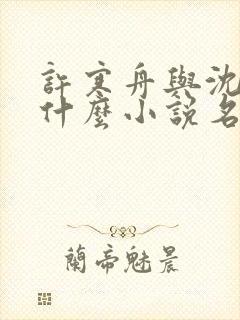 許寒舟與沈
什麼小説名
蘭帝魅晨